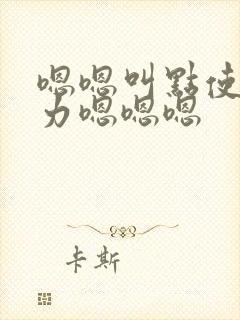 嗯嗯叫點使
力嗯嗯嗯
卡斯